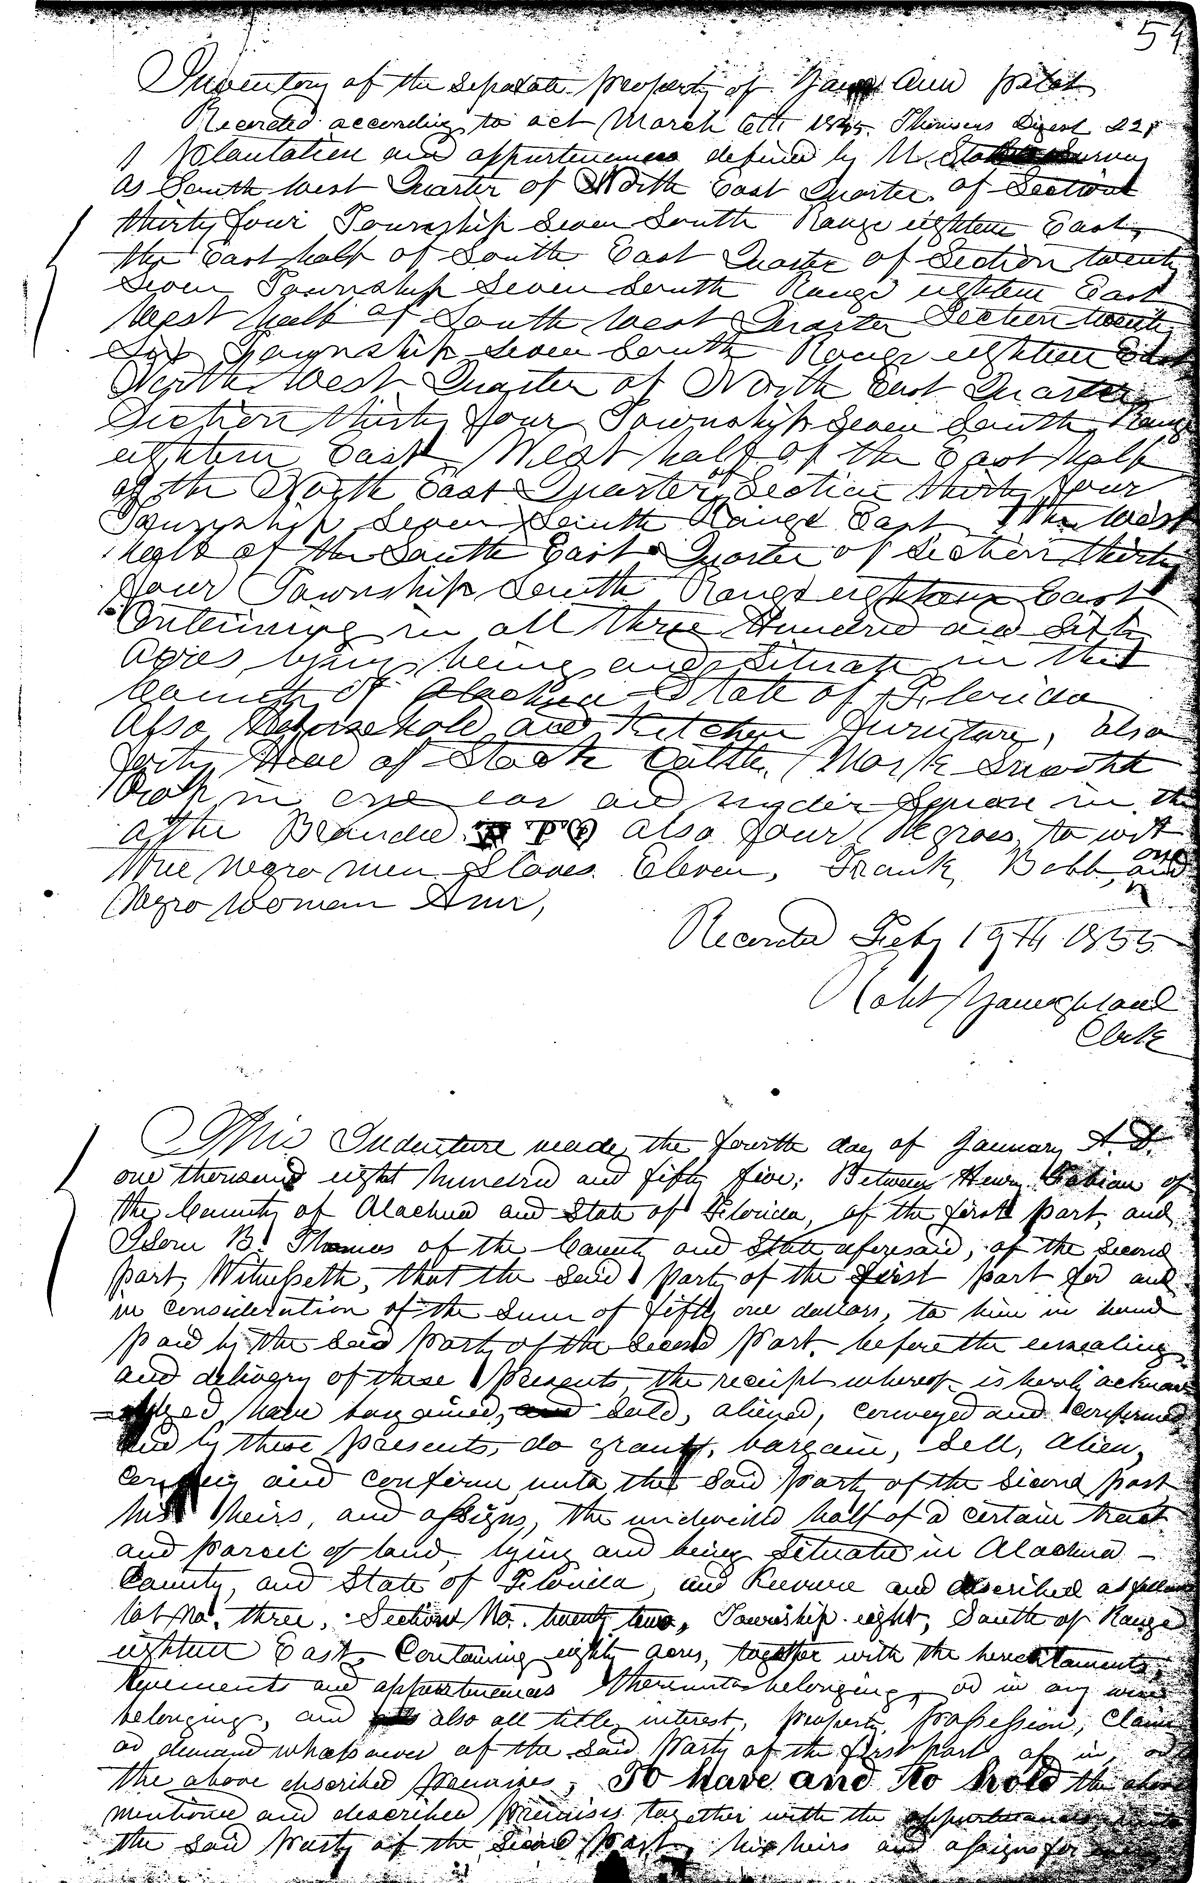 54
Inventory of the Separate property of Ann
Recorded according to act March 6th 1845. Thomsons Digest 221
1 plantation and appurtenances defined by U. States Survey
as South West Quarter of North East Quarter of Section
thirty four Township Seven South Range eighteen East,
the East half of South East Quarter of Section twenty
Seven Township Seven South Range eighteen East
West half of South West Quarter Section twenty
Six Township Seven South Range eighteen East
North West Quarter of North East Quarter
Section thirty four Township Seven South Range
eighteen East West half of the East half
of the North East Quarter of Section thirty four
Township Seven South Range East, The West
half of the South East Quarter of Section thirty
four Township South Range eighteen East
Containing in all three Hundred and Sixty
acres, lying being and Situate in the
County of Alachua State of Florida
Also Household and Kitchen furniture, also
forty Head of Stock Cattle, Mark Smooth
Crop in one ear and under Square in the
other Branded also four Negroes, to wit
three negro men Slaves Eleven, Frank, Bobb, and one
Negro woman Ann,
Recorded Feby 19th 1855
Robt
Clerk
This Indenture made the fourth day of January A.D.
one thousand eight hundred and fifty five; Between Henry Fabian of
the County of Alachua and State of Florida, of the first part, and
Isom B. Thomas of the County and State aforesaid, of the second
part, Witnesseth, that the said party of the first part for and
in consideration of the sum of fifty one dollars, to him in hand
paid by the said party of the second part, before the ensealing
and delivery of these presents, the receipt whereof is hereby acknow
ledged have bargained, and sold, aliened, conveyed and confirmed
and by these presents, do grant, bargain, sell, alien,
convey and confirm unto the said party of the second part
his heirs, and assigns, the undivided half of a certain tract
and parcel of land, lying and being Situate in Alachua -
County, and State of Florida, and and described as follows
lot No. three, Section No. twenty two, Township eight, South of Range
eighteen East, Containing eighty acres, together with the hereditaments,
tenements and appurtenances thereunto belonging, or in any wise
belonging, and also all title, interest, property, possession, claim
or demand whatsoever of the said party of the first part, of, in, or
the above described premises, To have and to hold the above
mentioned and described premises together with the appurtenances
the said party of the second part, his heirs and assigns for